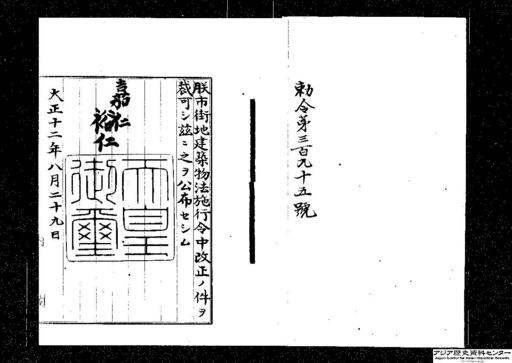 勅令第三百九十五號
朕市街地建築物法施行令中改正ノ件ヲ
裁可シ茲ニ之ヲ公布セシム
嘉仁
裕仁
天皇
御璽
大正十二年八月二十九日
アジア歴史資料センター
Japan Center for Asian Historical Records